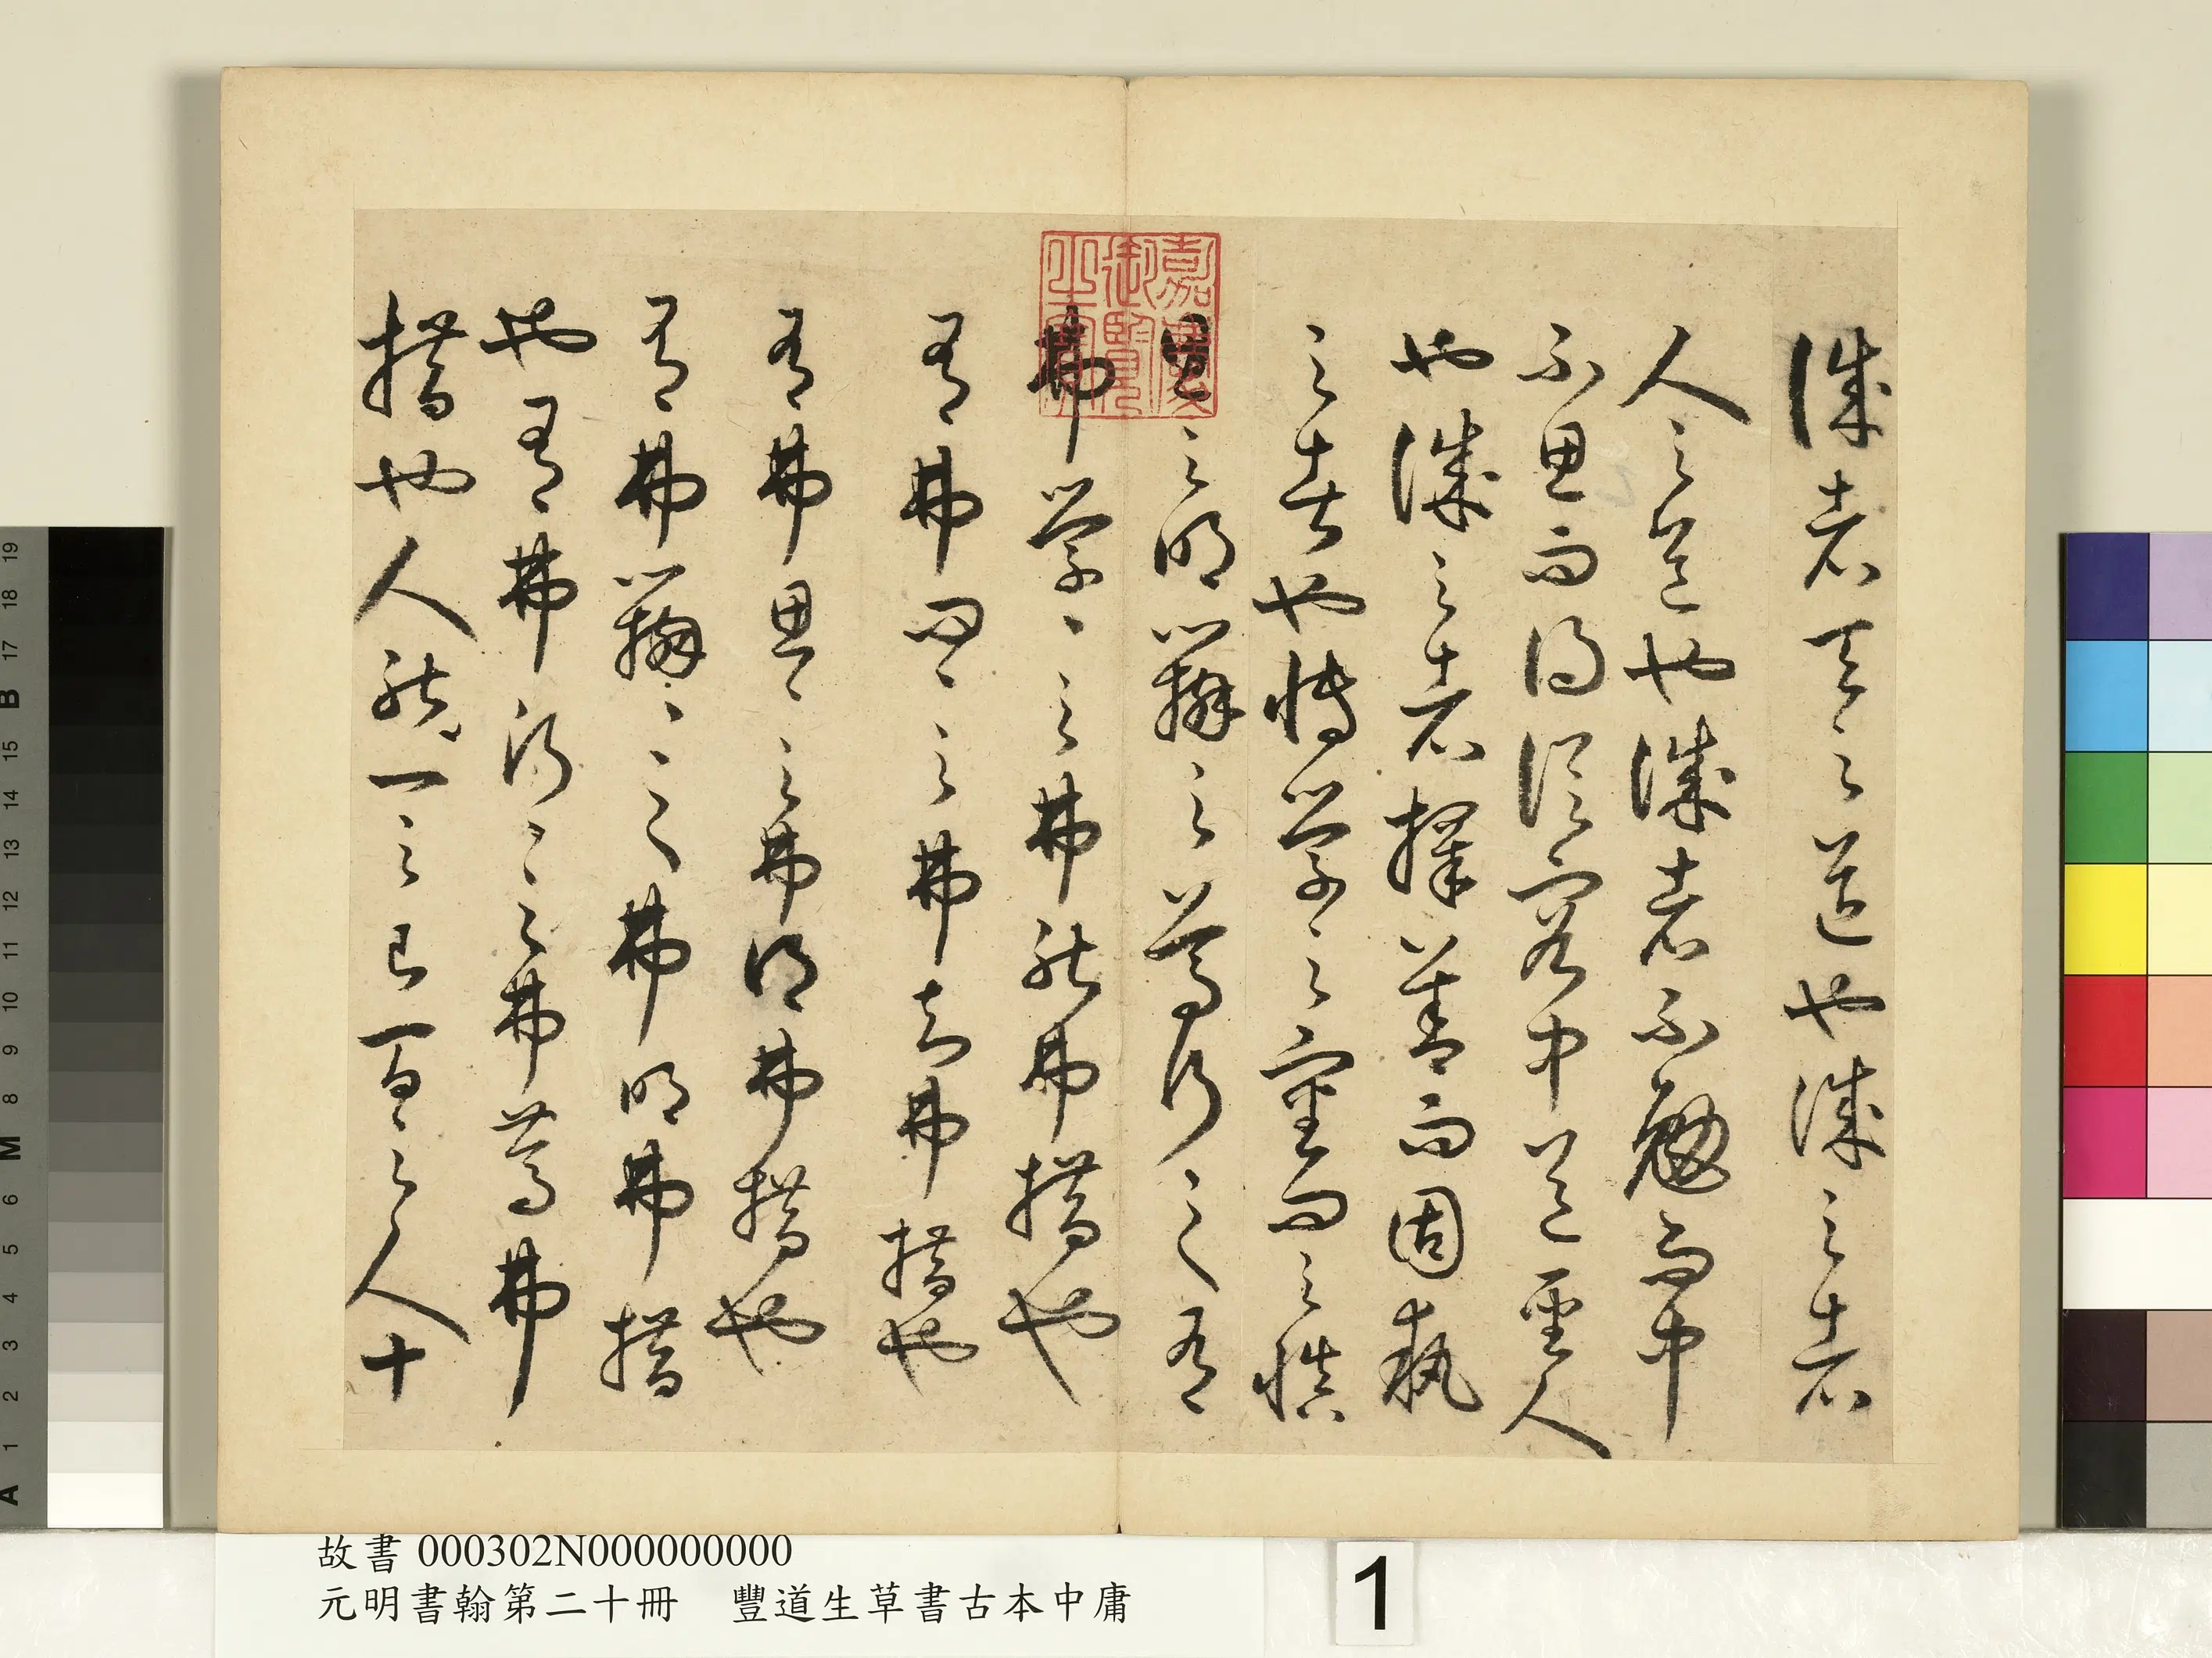 誠者天之道也誠之者
人之道也誠者不勉而中
不思而得從容中道聖人
也誠之者擇善而固執
之者也博學之審問之慎
思之明辯之篤行之有
弗學〻之弗能弗措也
有弗問〻之弗知弗措也
有弗思〻之弗得弗措也
有弗辯〻之弗明弗措
也有弗行〻之弗篤弗
措也人能一之己百之人十
嘉慶御覽之寶
故書 000302N000000000
元明書翰第二十冊 豐道生草書古本中庸
1
19
18
17
B
15
14
13
12
11
10
9
8
M
6
5
4
3
2
1
A